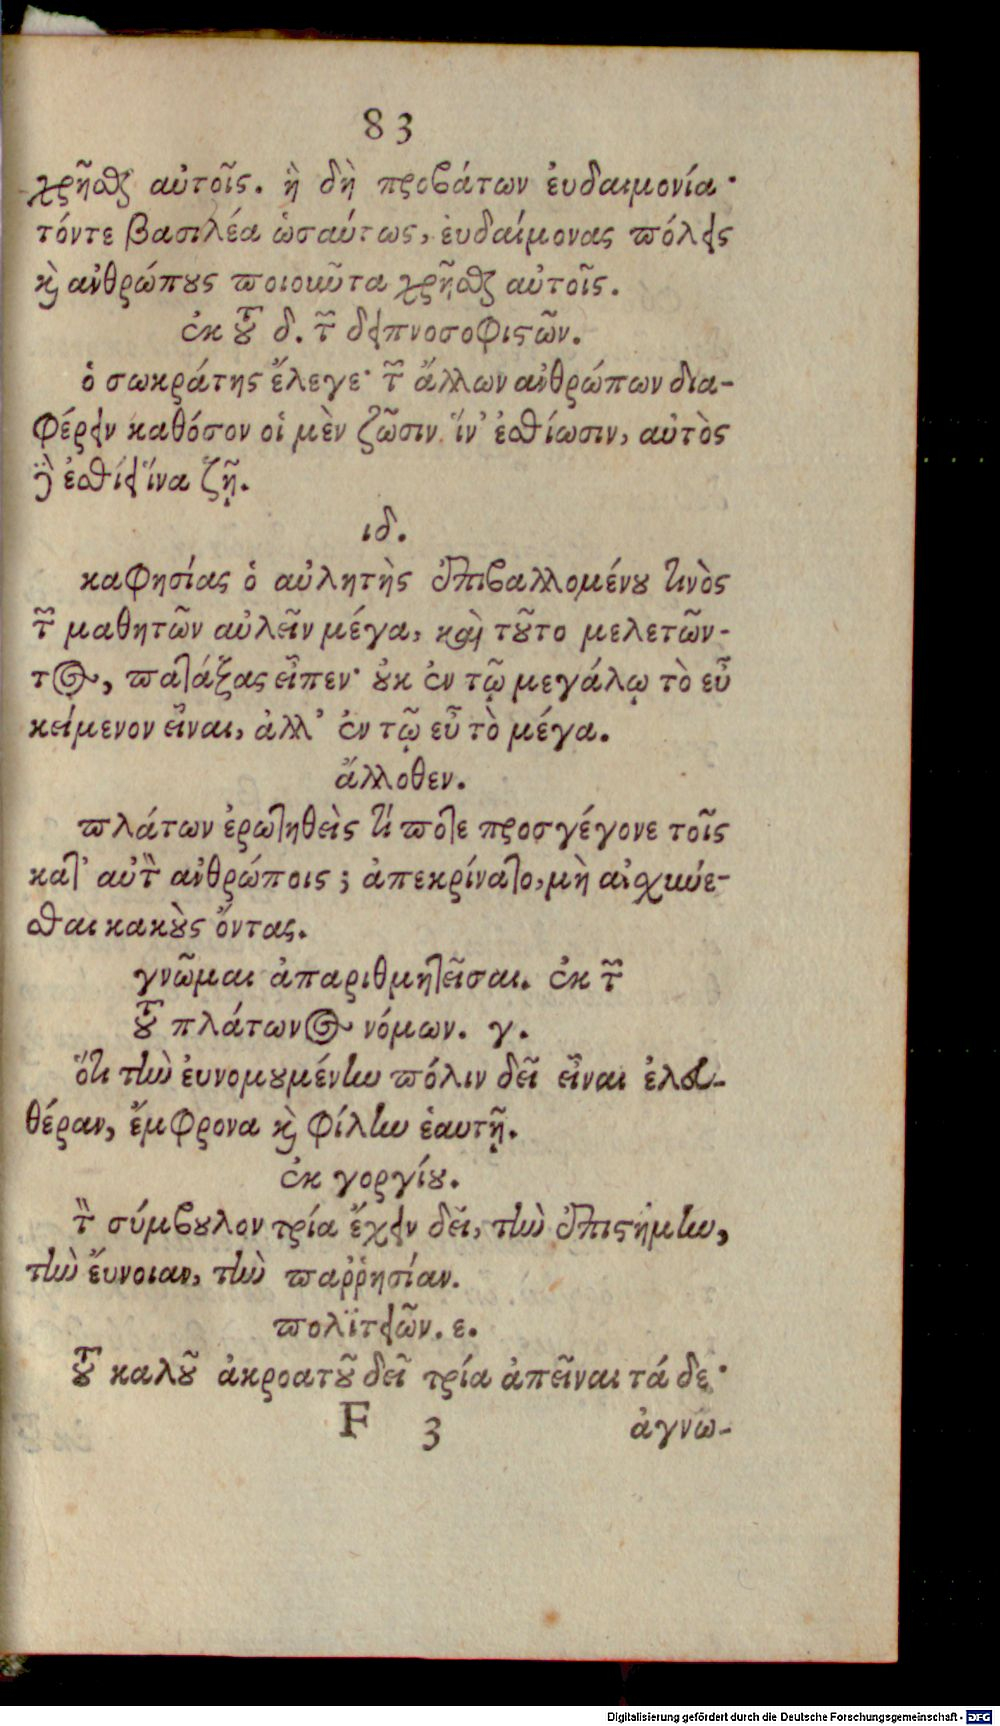 83
χρῆσθαι αὐτοῖς. ἡ δὴ προβάτων ἐυδαιμονία·
τόντε βασιλέα ὡσαύτως, ἐυδαίμονας πόλεις
καὶ ἀνθρώπους ποιοῦντα χρῆσθαι αὐτοῖς.
ἐκ τοῦ δ. τῶν δειπνοσοφιστῶν.
ὁ σωκράτης ἔλεγε· τῶν ἄλλων ἀνθρώπων δια-
φέρειν καθόσον οἱ μὲν ζῶσιν ἵν' ἐσθίωσιν, αὐτὸς
δὲ ἐσθίει ἵνα ζῇ.
ιδ.
καφησίας ὁ αὐλητὴς ἐπιβαλλομένου τινὸς
τῶν μαθητῶν αὐλεῖν μέγα, καὶ τοῦτο μελετῶν-
τος, πατάξας εἶπεν· οὐκ ἐν τῷ μεγάλῳ τὸ εὖ
κείμενον εἶναι, ἀλλ' ἐν τῷ εὖ τὸ μέγα.
ἄλλοθεν.
πλάτων ἐρωτηθεὶς τί ποτε προσγέγονε τοῖς
κατ' αὐτὸν ἀνθρώποις; ἀπεκρίνατο, μὴ αἰσχύνε-
σθαι κακοὺς ὄντας.
γνῶμαι ἀπαριθμητεῖσαι. ἐκ τῶν
τοῦ πλάτωνος νόμων. γ.
ὅτι τὴν ἐυνομουμένην πόλιν δεῖ εἶναι ἐλευ-
θέραν, ἔμφρονα καὶ φίλην ἑαυτῇ.
ἐκ γοργίου.
τὸν σύμβουλον τρία ἔχειν δεῖ, τὴν ἐπιστήμην,
τὴν ἔυνοιαν, τὴν παῤῥησίαν.
πολϊτειῶν. ε.
τοῦ καλοῦ ἀκροατοῦ δεῖ τρία ἀπεῖναι τά δε·
F 3 ἀγνω-
Digitalisierung gefördert durch die Deutsche Forschungsgemeinschaft - DFG